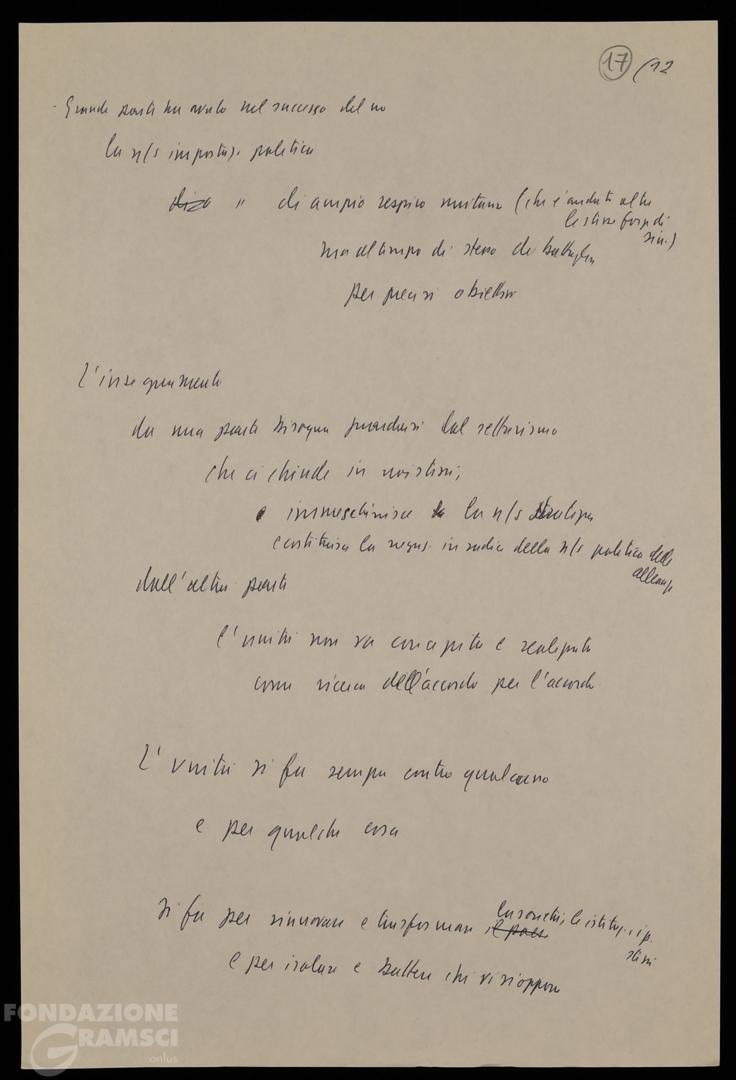 17 /12
- Grande parte ha avuto nel successo del no
la n/s impostaz. politica
" di ampio respiro unitario (che è andata oltre
le stesse forze di
sin.)
ma al tempo di stesso di battaglia
per precisi obiettivi
L'insegnamento
da una parte bisogna guardarsi dal settarismo
che ci chiude in noi stessi,
e immeschinisce la n/s
e costituisce la negaz. in radice della n/s politica delle
alleanze
dall'altra parte
l'unità non va concepita e realizzata
come ricerca dell'accordo per l'accordo
L'unità si fa sempre contro qualcuno
e per qualche cosa
si fa per rinnovare e trasformare il paese
la società, le istituz., i p.
stessi
e per isolare e battere chi vi si oppone
FONDAZIONE
GRAMSCI
onlus